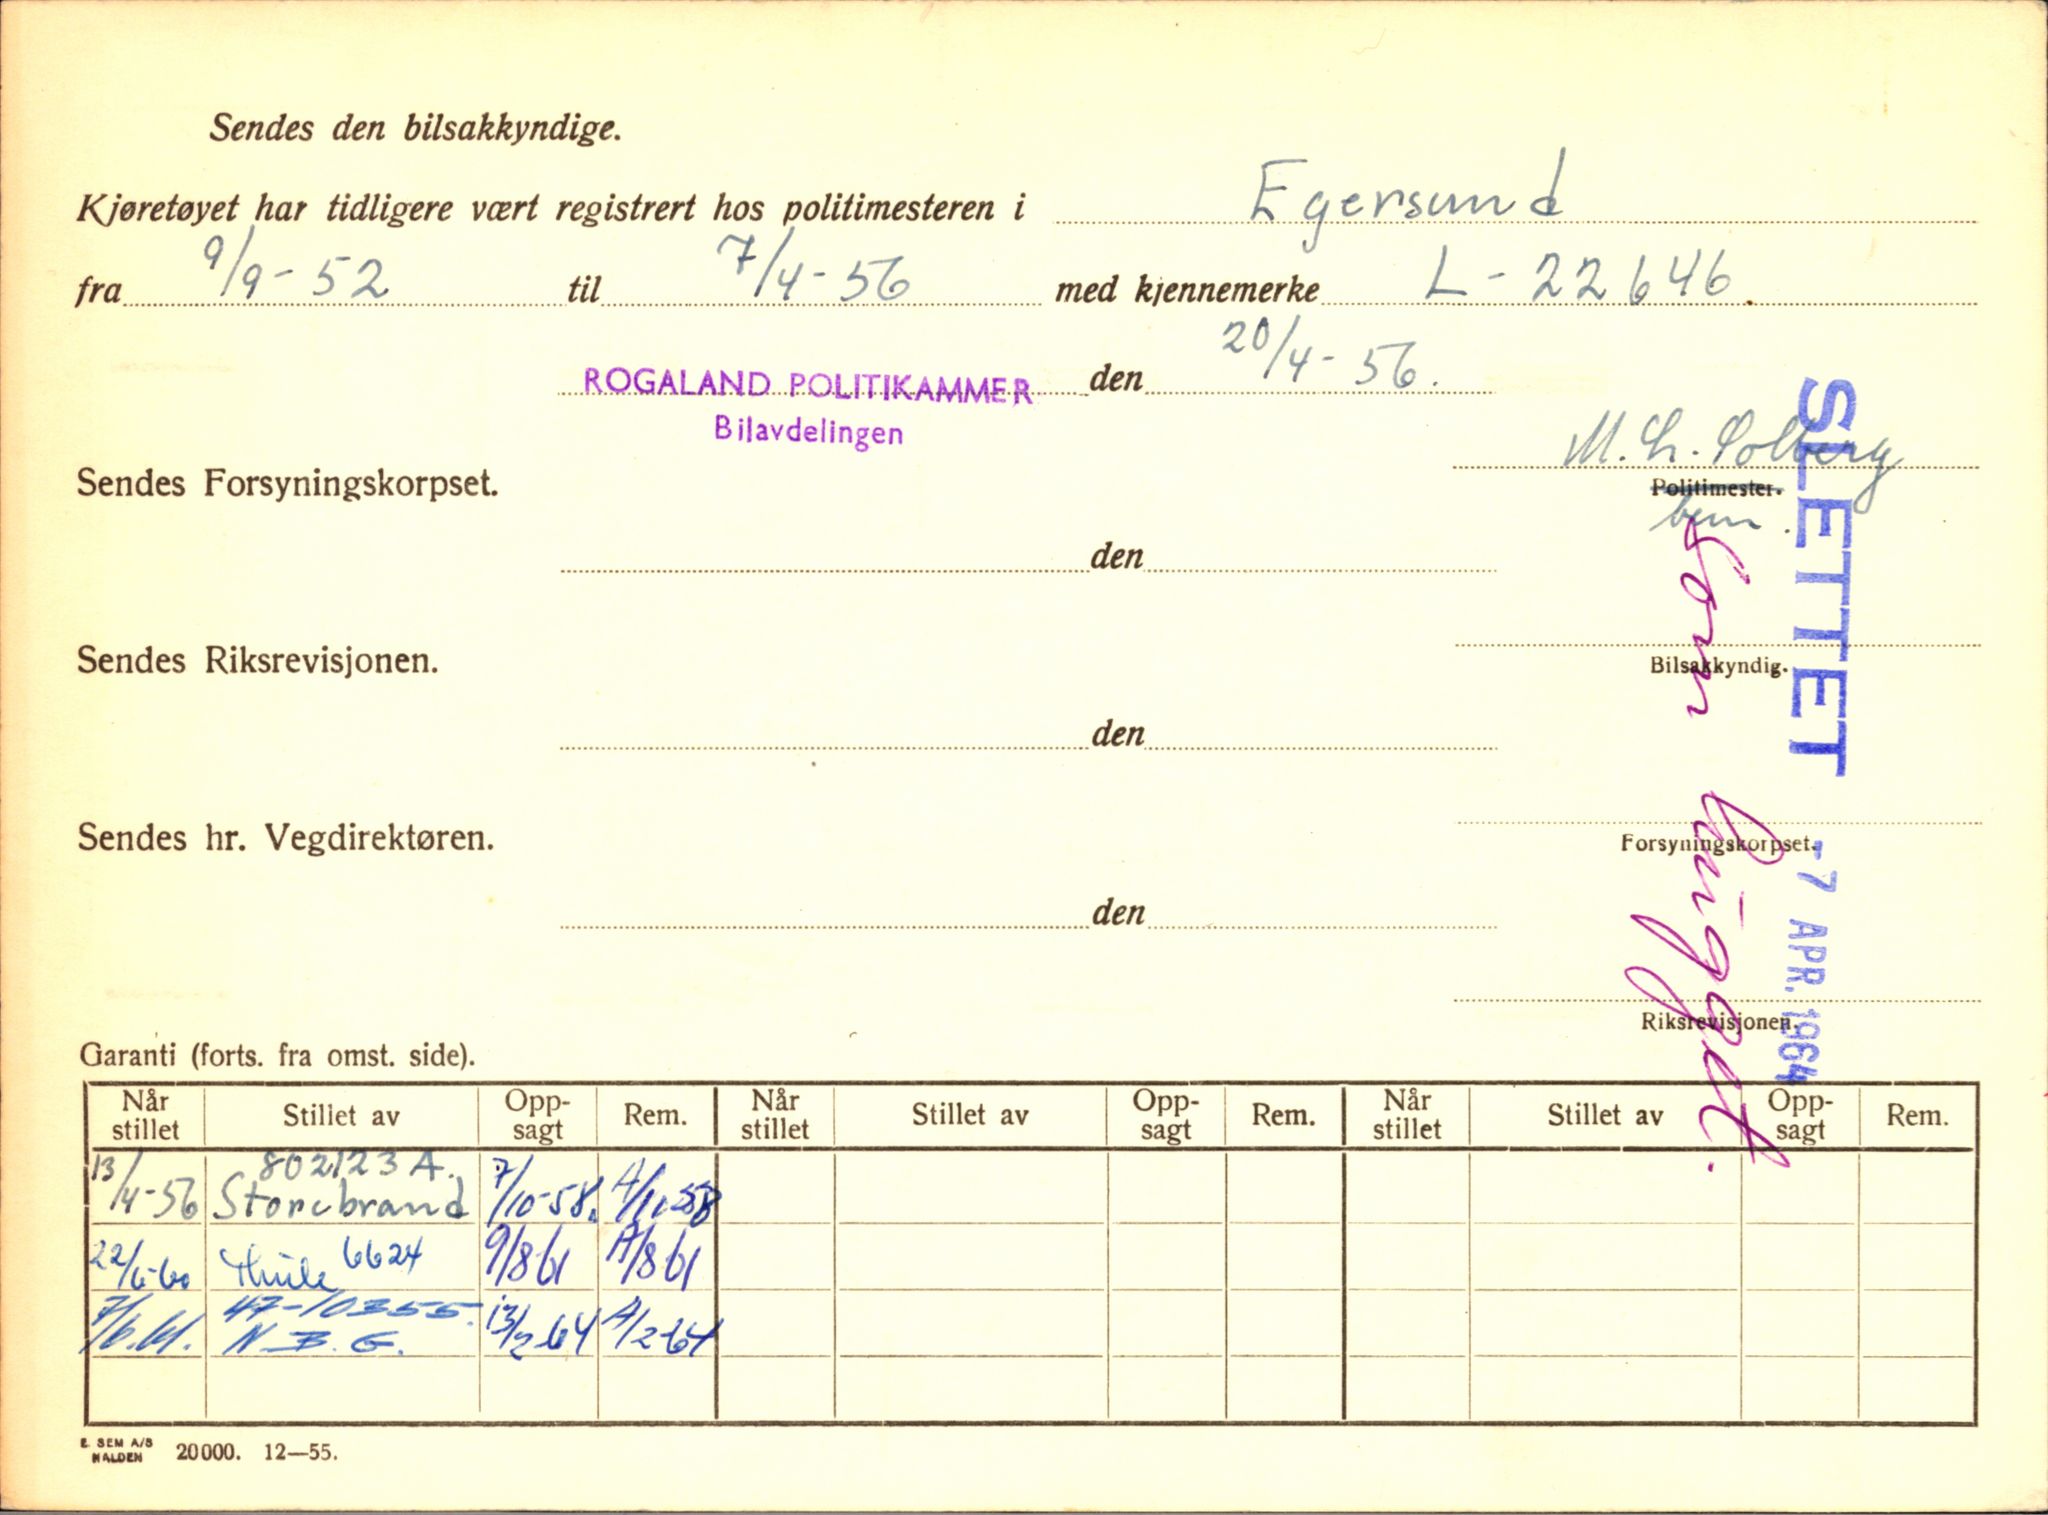 Sendes den bilsakkyndige.
Kjøretøyet har tidligere vært registrert hos politimesteren i Egersund
fra 9/9-52 til 7/4-56 med kjennemerke L-22646.
ROGALAND POLITIKAMMER den 20/4-56.
Bilavdelingen
M. Solberg
Sendes Forsyningskorpset.
Politimester.
den
Sendes Riksrevisjonen.
Bilsakkyndig.
den
Sendes hr. Vegdirektøren.
Forsyningskorpset.
den
Riksrevisjonen.
SLETTET
-7 APR. 1964
Som
Garanti (forts. fra omst. side).
Når stillet Stillet av Opp-sagt Rem. Når stillet Stillet av Opp-sagt Rem. Når stillet Stillet av Opp-sagt Rem.
802123 A.
13/4-56 Storebrand 7/10-58. A/11-58
22/6-60 Thule 6624 9/8 61 A/8 61
47-10355.
7/6.61. N.B.G. 13/2-64 A/2-64
E. SEM A/S
HALDEN
20000. 12—55.